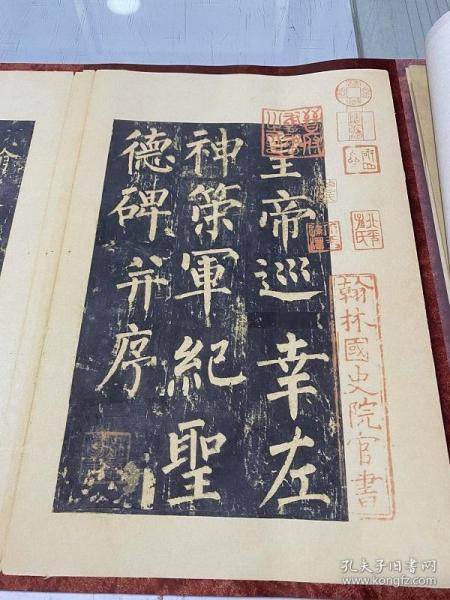 皇帝巡幸左
神策軍紀聖
德碑并序
翰林國史院官書
孔夫子旧书网
www.kongfz.com